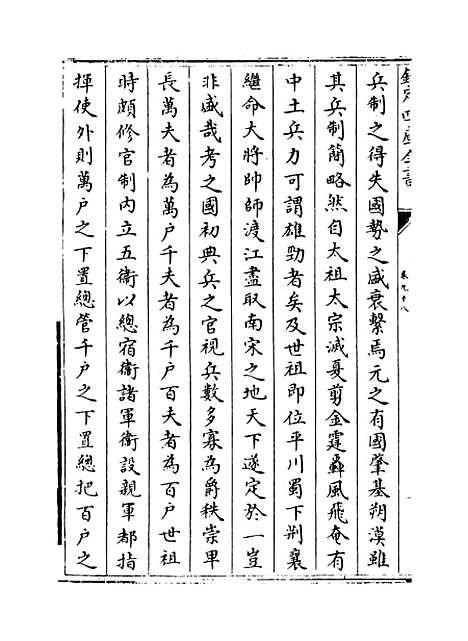 欽定四庫全書
卷九十八
兵制之得失國勢之盛衰繫焉元之有國肇基朔漠雖
其兵制簡略然自太祖太宗滅夏剪金霆轟風飛奄有
中土兵力可謂雄勁者矣及世祖即位平川蜀下荆襄
繼命大將帥師渡江盡取南宋之地天下遂定於一豈
非盛哉考之國初典兵之官視兵數多寡為爵秩崇卑
長萬夫者為萬户千夫者為千户百夫者為百户世祖
時頗修官制内立五衛以總宿衛諸軍衛設親軍都指
揮使外則萬户之下置總管千户之下置總把百户之